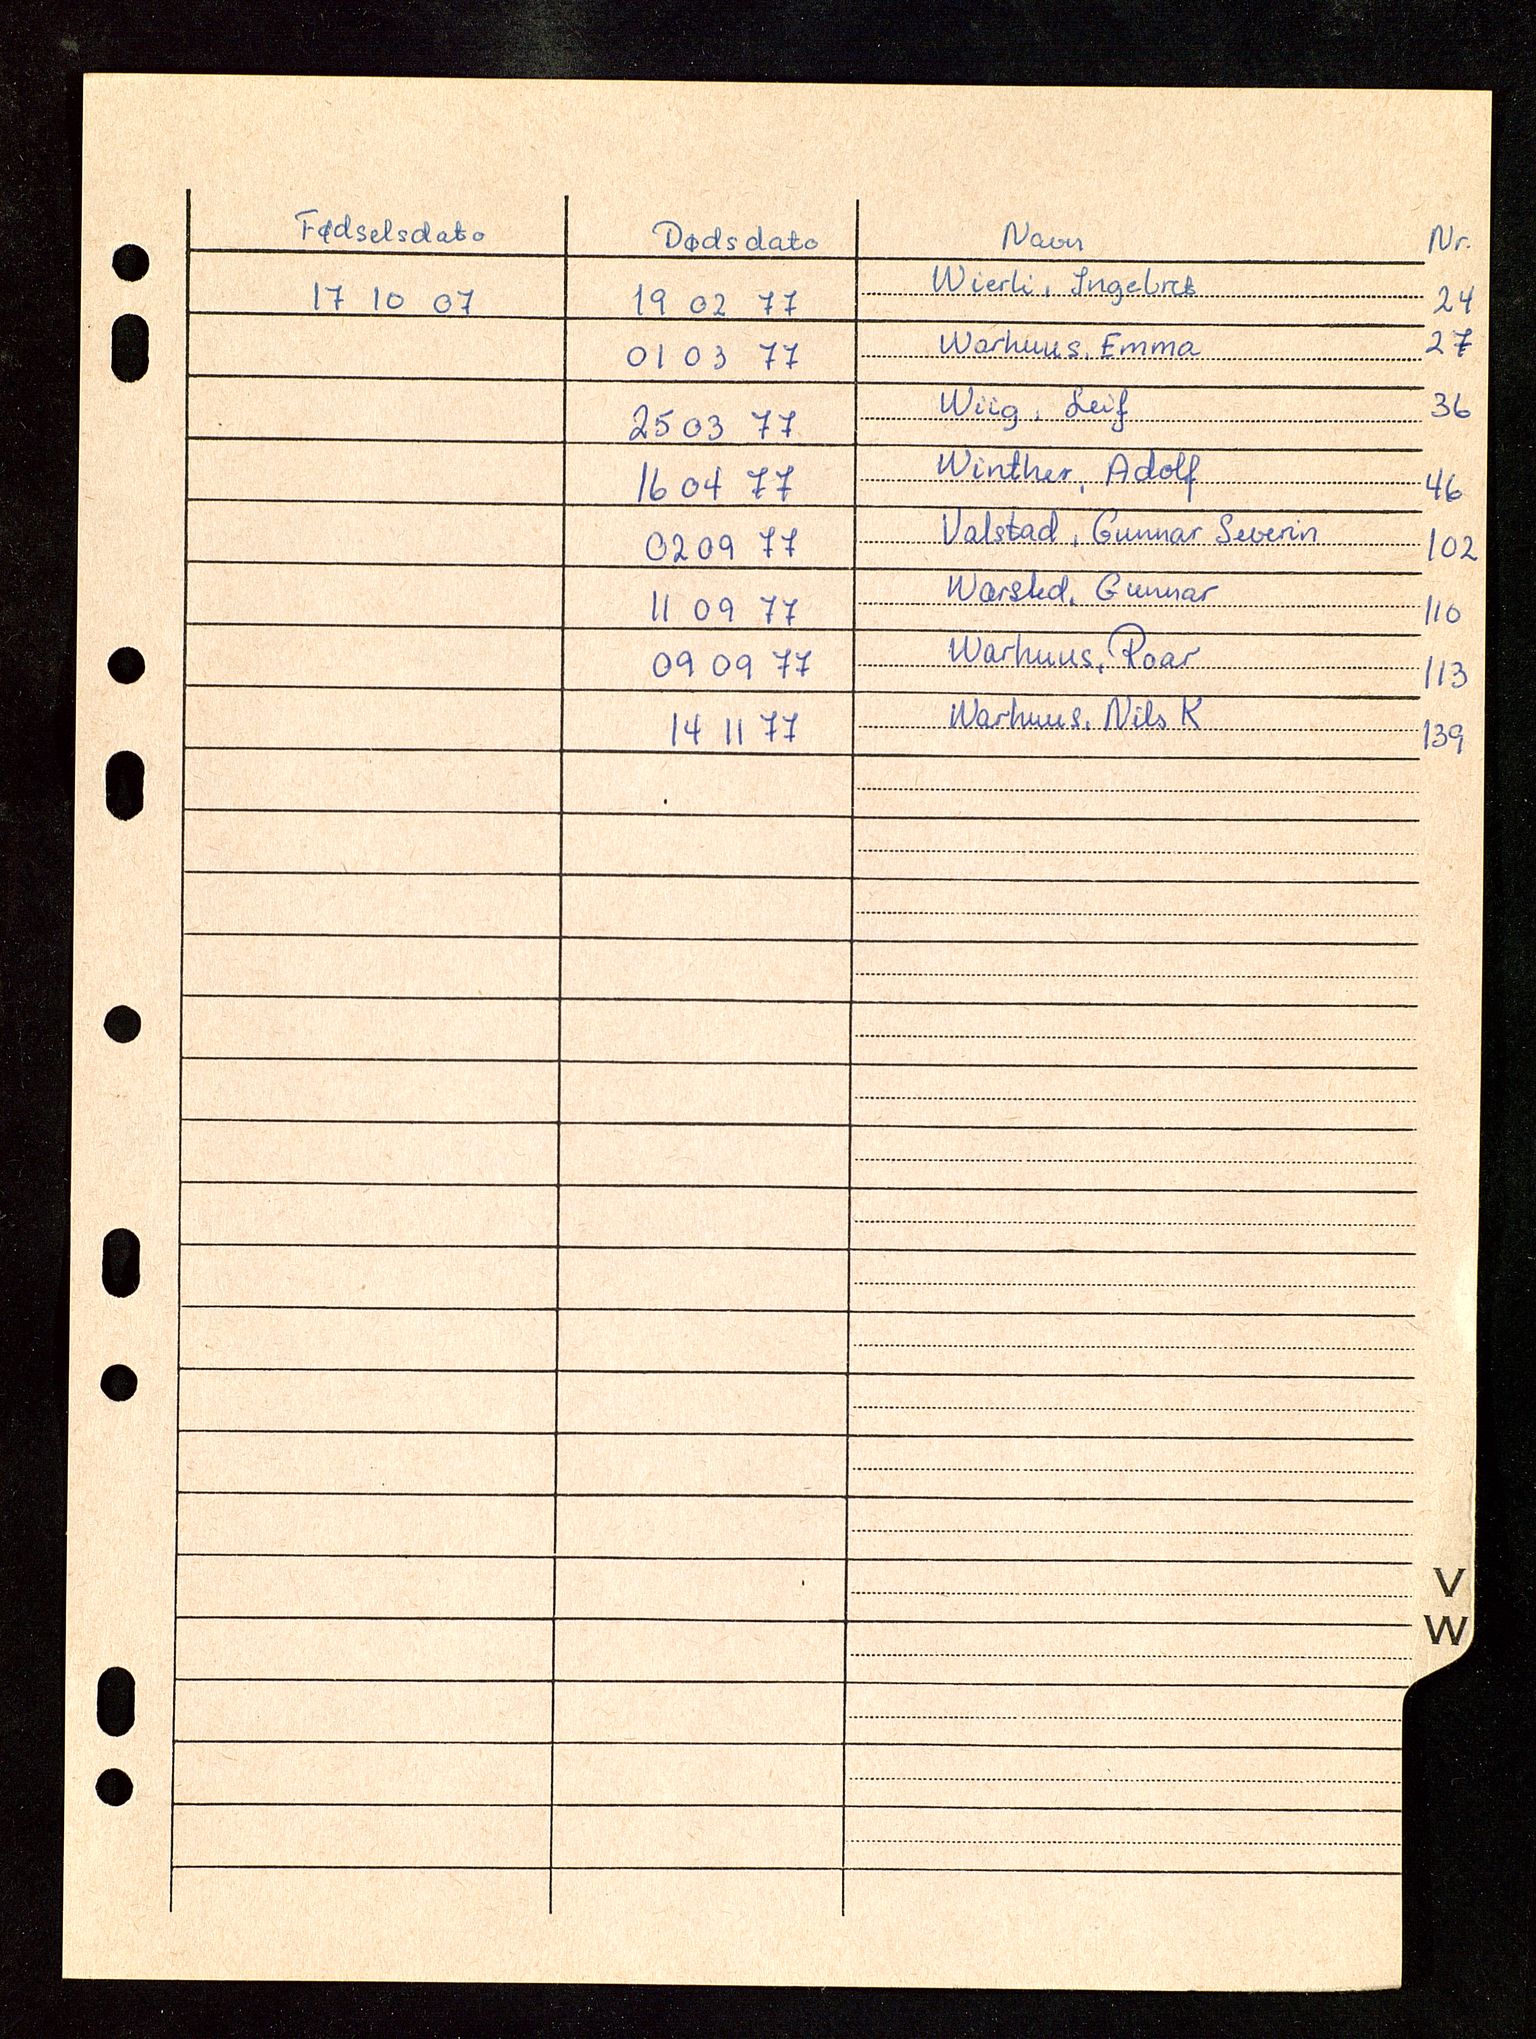 Fødselsdato Dødsdato Navn Nr.
17 10 07 19 02 77 Wierli, Ingebret 24
01 03 77 Warhuus, Emma 27
25 03 77 Wiig, Leif 36
16 04 77 Winther, Adolf 46
02 09 77 Valstad, Gunnar Severin 102
11 09 77 Warsted, Gunnar 110
09 09 77 Warhuus, Roar 113
14 11 77 Warhuus, Nils K 139
V
W